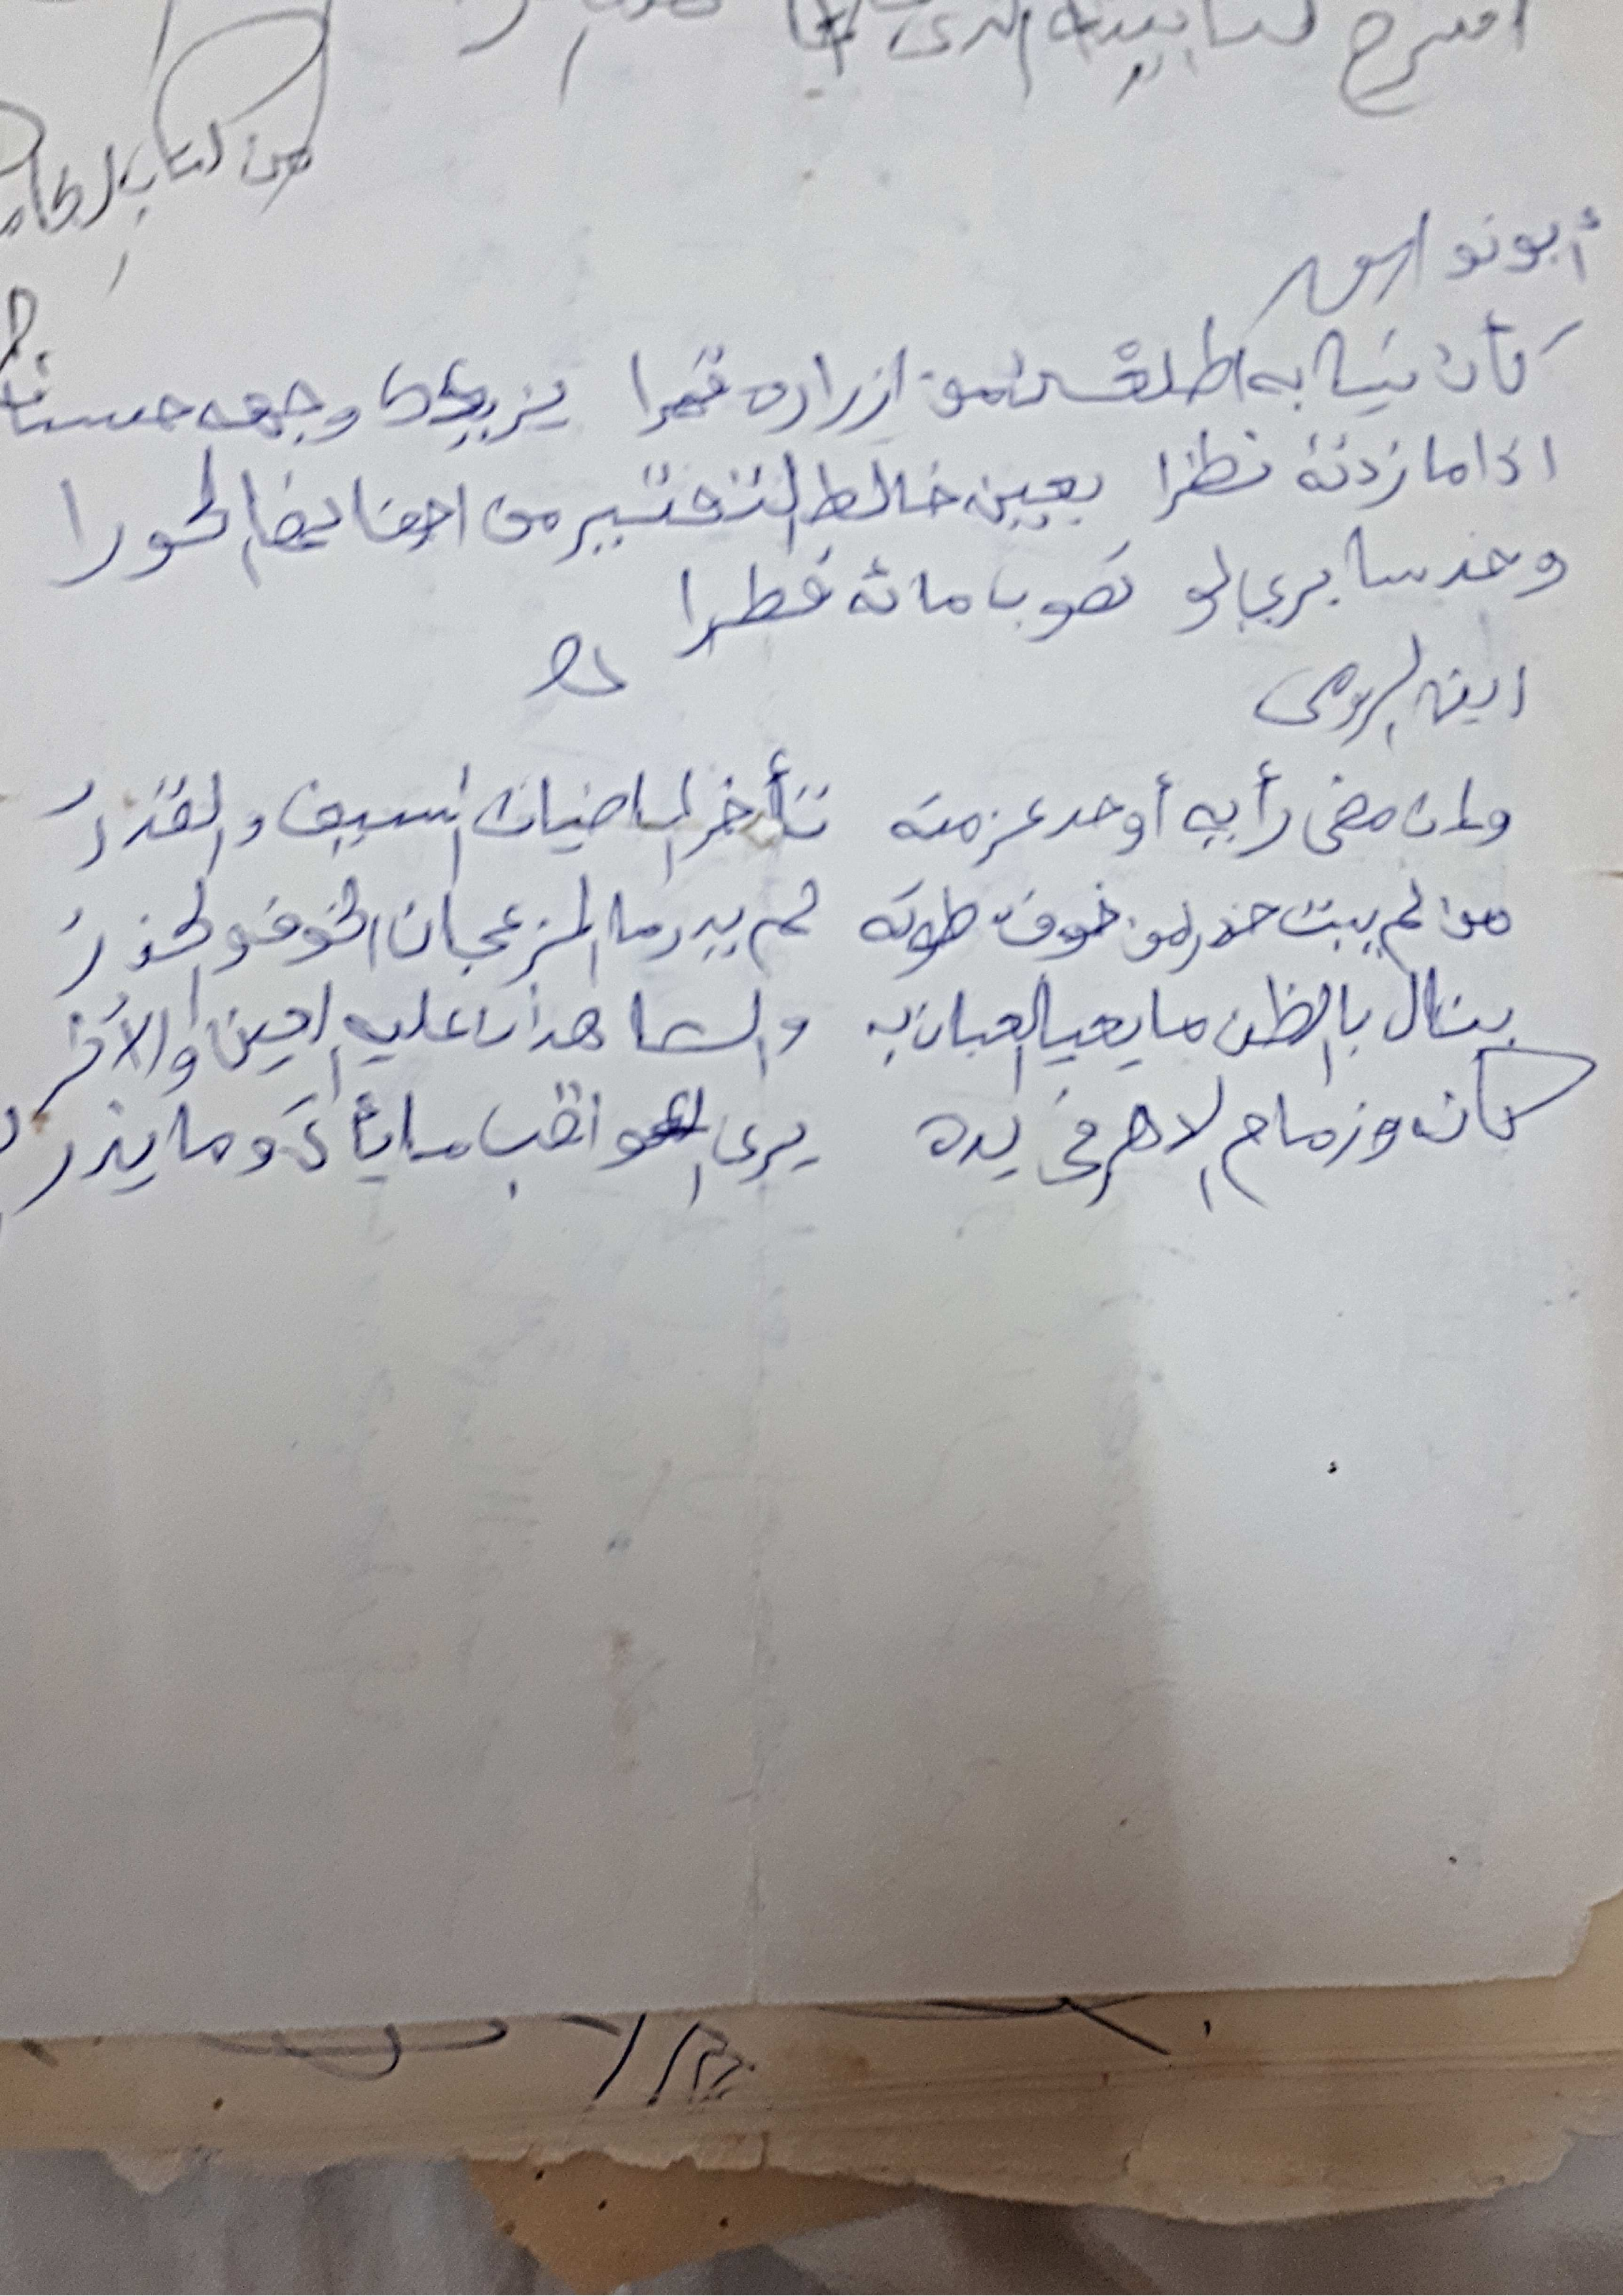 من كتاب
أبو نواس
كأن ثيابه اطلعن من ازراره قمرا يزيدك وجهه حسنا
اذا ما زدته نظرا بعين خالط التفتير من اجفانها الحورا
وخد سابري لو تصوب ماءه قطرا
ابن الرومي
وان مضى رأيه أو حد عزمته تأخر الماضيان السيف والقدرُ
من لم يبت حذرا من خوف سطوته لم يدر ما المزعجان الخوف والحذرُ
ينال بالظن ما يعيا العيان به والشاهدان عليه العين والاثرُ
كأنه وزمام الدهر في يده يرى العواقب ما يأتي وما يذر